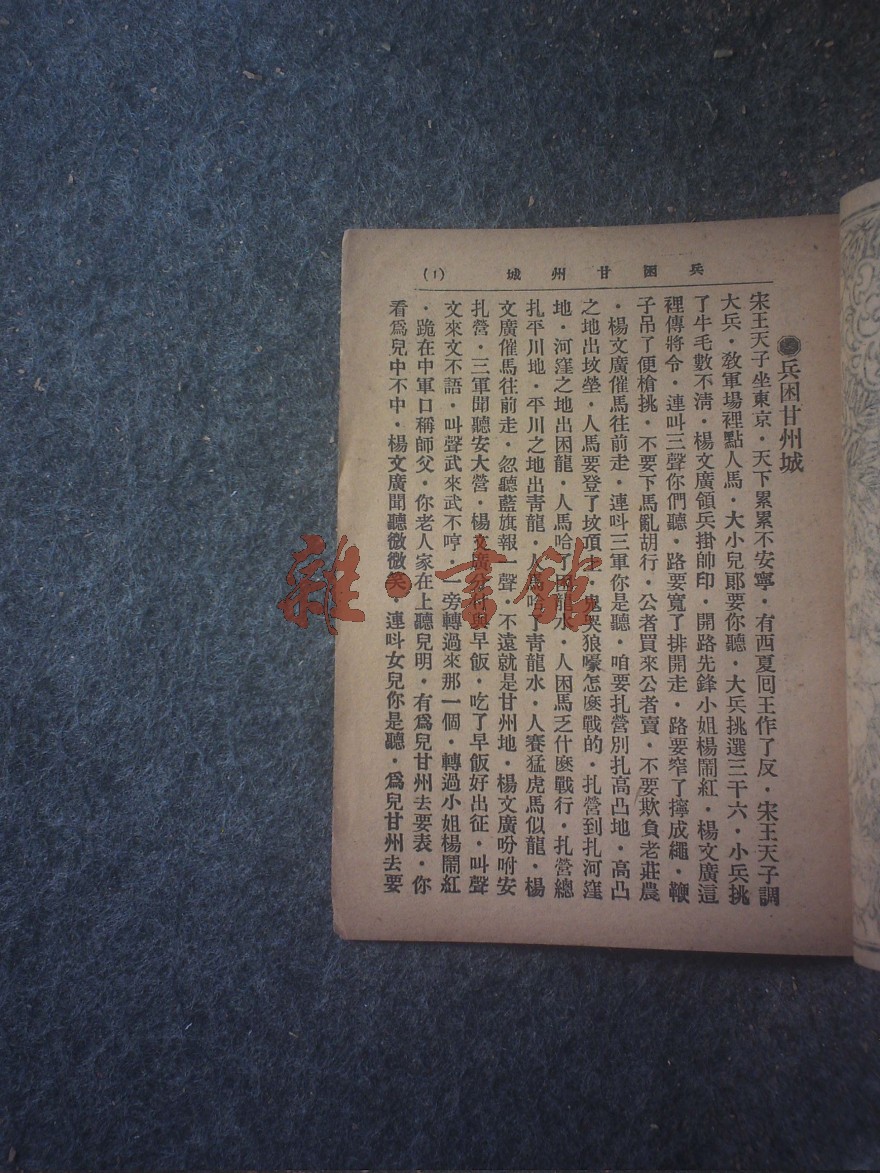 兵困甘州城 (1)
兵困甘州城
宋王天子坐東京·天下累累不安寧·有西夏囘王作了反·宋王天子調
大兵·敎軍場裡點人馬·大小兒郞要你聽·大兵挑選三千六·小兵挑
了牛毛數不清·楊文廣領兵掛帥印·開路先鋒小姐楊鬧紅·楊文廣這
裡傳將令·連叫三聲你們聽·路要寬了排開走·路要窄了擰成繩·鞭
子吊了便槍挑·不要下馬亂胡行·公者買來公者賣·不要欺負老莊農
·楊文廣催馬往前走·連呌三軍你是聽·咱要扎營別扎高凸地·高凸
之地出坟塋·人馬要登了坟頂·鬼哭狼嚎怎麽戰的·扎營到扎河窪
地·河窪之地出困龍·人馬哈了困龍水·人困馬乏什麽戰行·扎營總
扎平川地·平川之地出青龍·人馬哈了青龍水·人賽猛虎馬似龍·楊
文廣催馬往前走·忽聽藍旗報一聲·不遠就是甘州地·楊文廣吩咐安
扎營·三軍聞聽安大營·楊文廣分付早飯·吃了早飯好出征·叫聲
文來文不語·叫聲武來武不哼·一旁轉過來那一個·轉過小姐楊鬧紅
·跪在中軍口稱師父·你老人家在上聽兒明·有爲兒甘州去要表·你
看爲兒中不中·楊文廣聞聽微微笑·連呌女兒你是聽·爲兒甘州去要
雜·書館